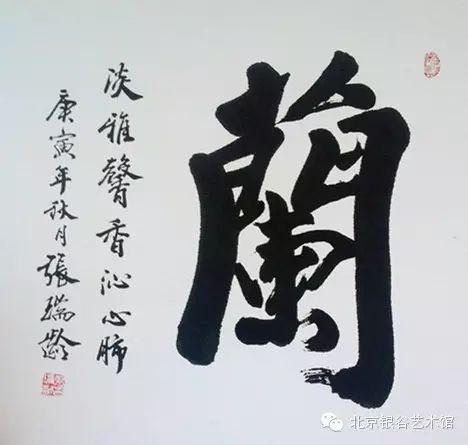 蘭
淡雅馨香沁心肺
庚寅年秋月張瑞齡
北京银谷艺术馆